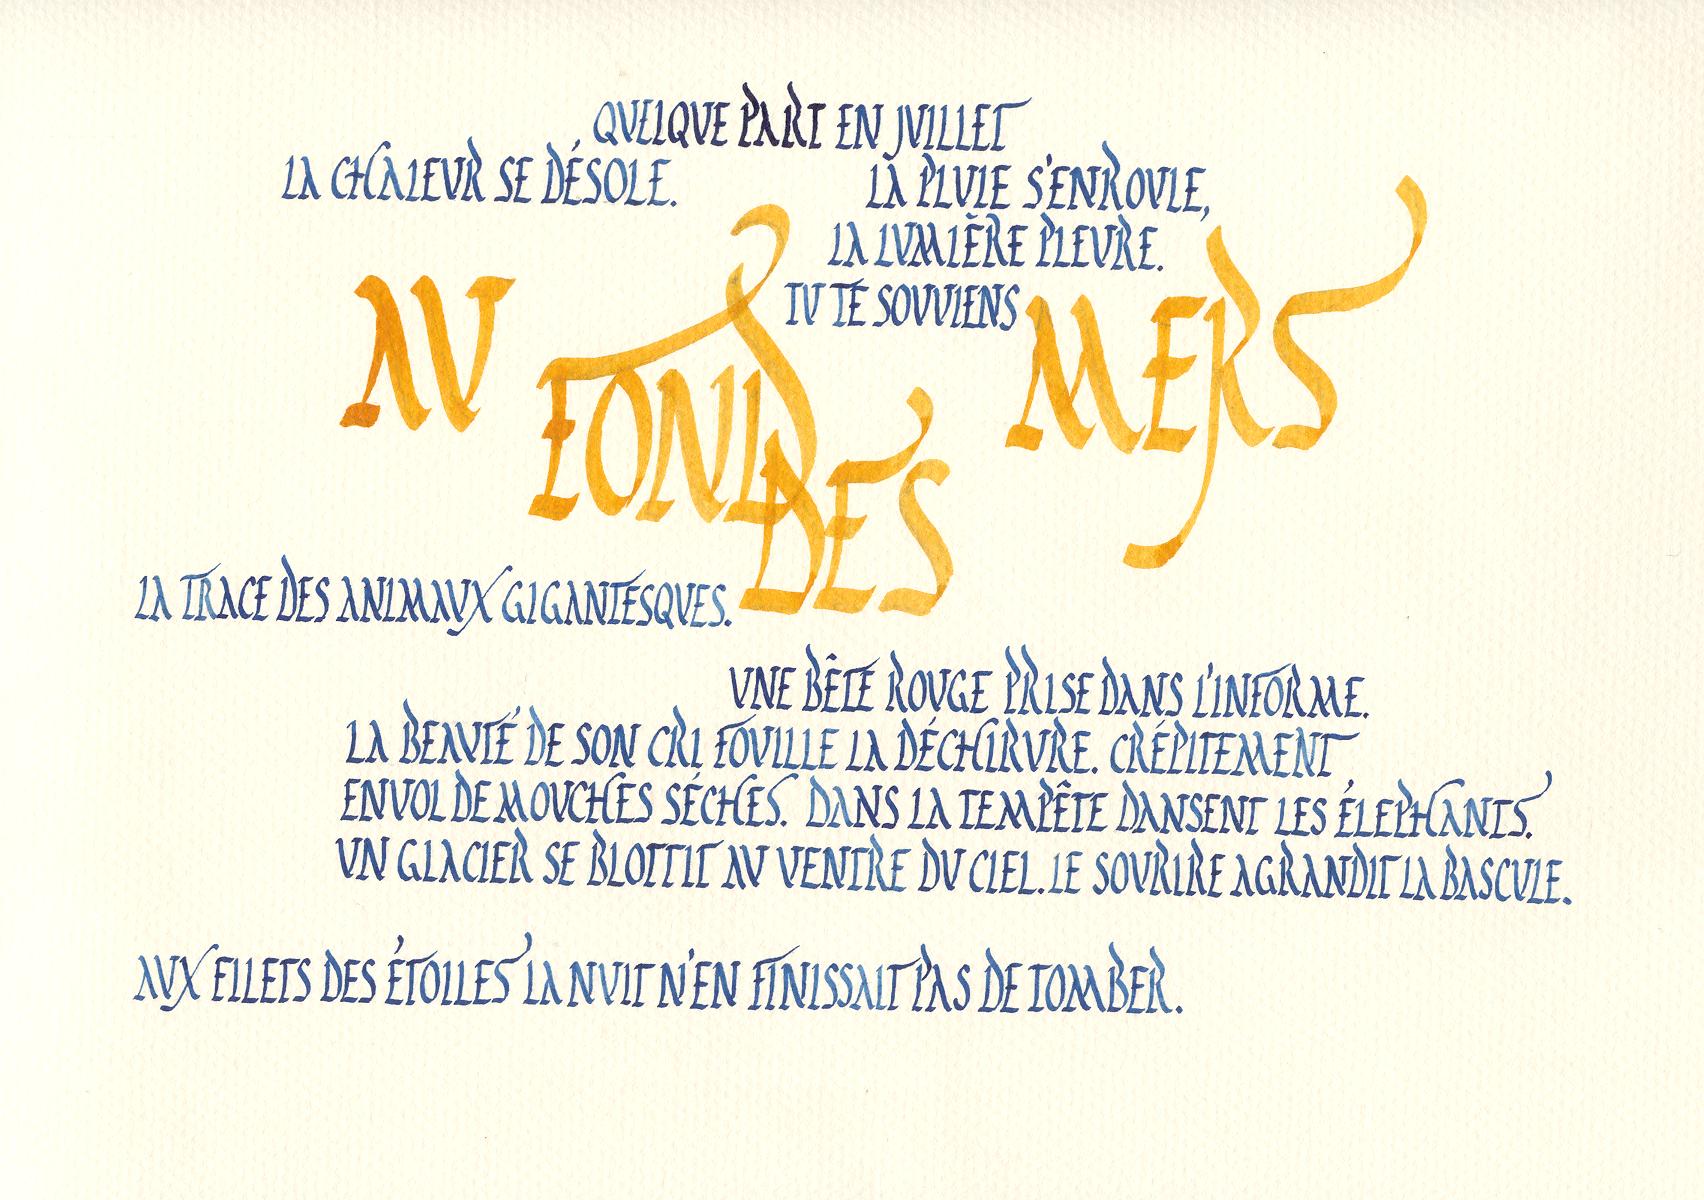 QUELQUE PART EN JUILLET
LA CHALEUR SE DÉSOLE.
LA PLUIE S'ENROULE,
LA LUMIÈRE PLEURE.
TU TE SOUVIENS
AU FOND DES MERS
LA TRACE DES ANIMAUX GIGANTESQUES.
UNE BÊTE ROUGE PRISE DANS L'INFORME.
LA BEAUTÉ DE SON CRI FOUILLE LA DÉCHIRURE. CRÉPITEMENT,
ENVOL DE MOUCHES SÉCHES. DANS LA TEMPÊTE DANSENT LES ÉLEPHANTS.
UN GLACIER SE BLOTTIT AU VENTRE DU CIEL. LE SOURIRE AGRANDIT LA BASCULE.
AUX FILLETS DES ÉTOILES LA NUIT N'EN FINISSAIT PAS DE TOMBER.